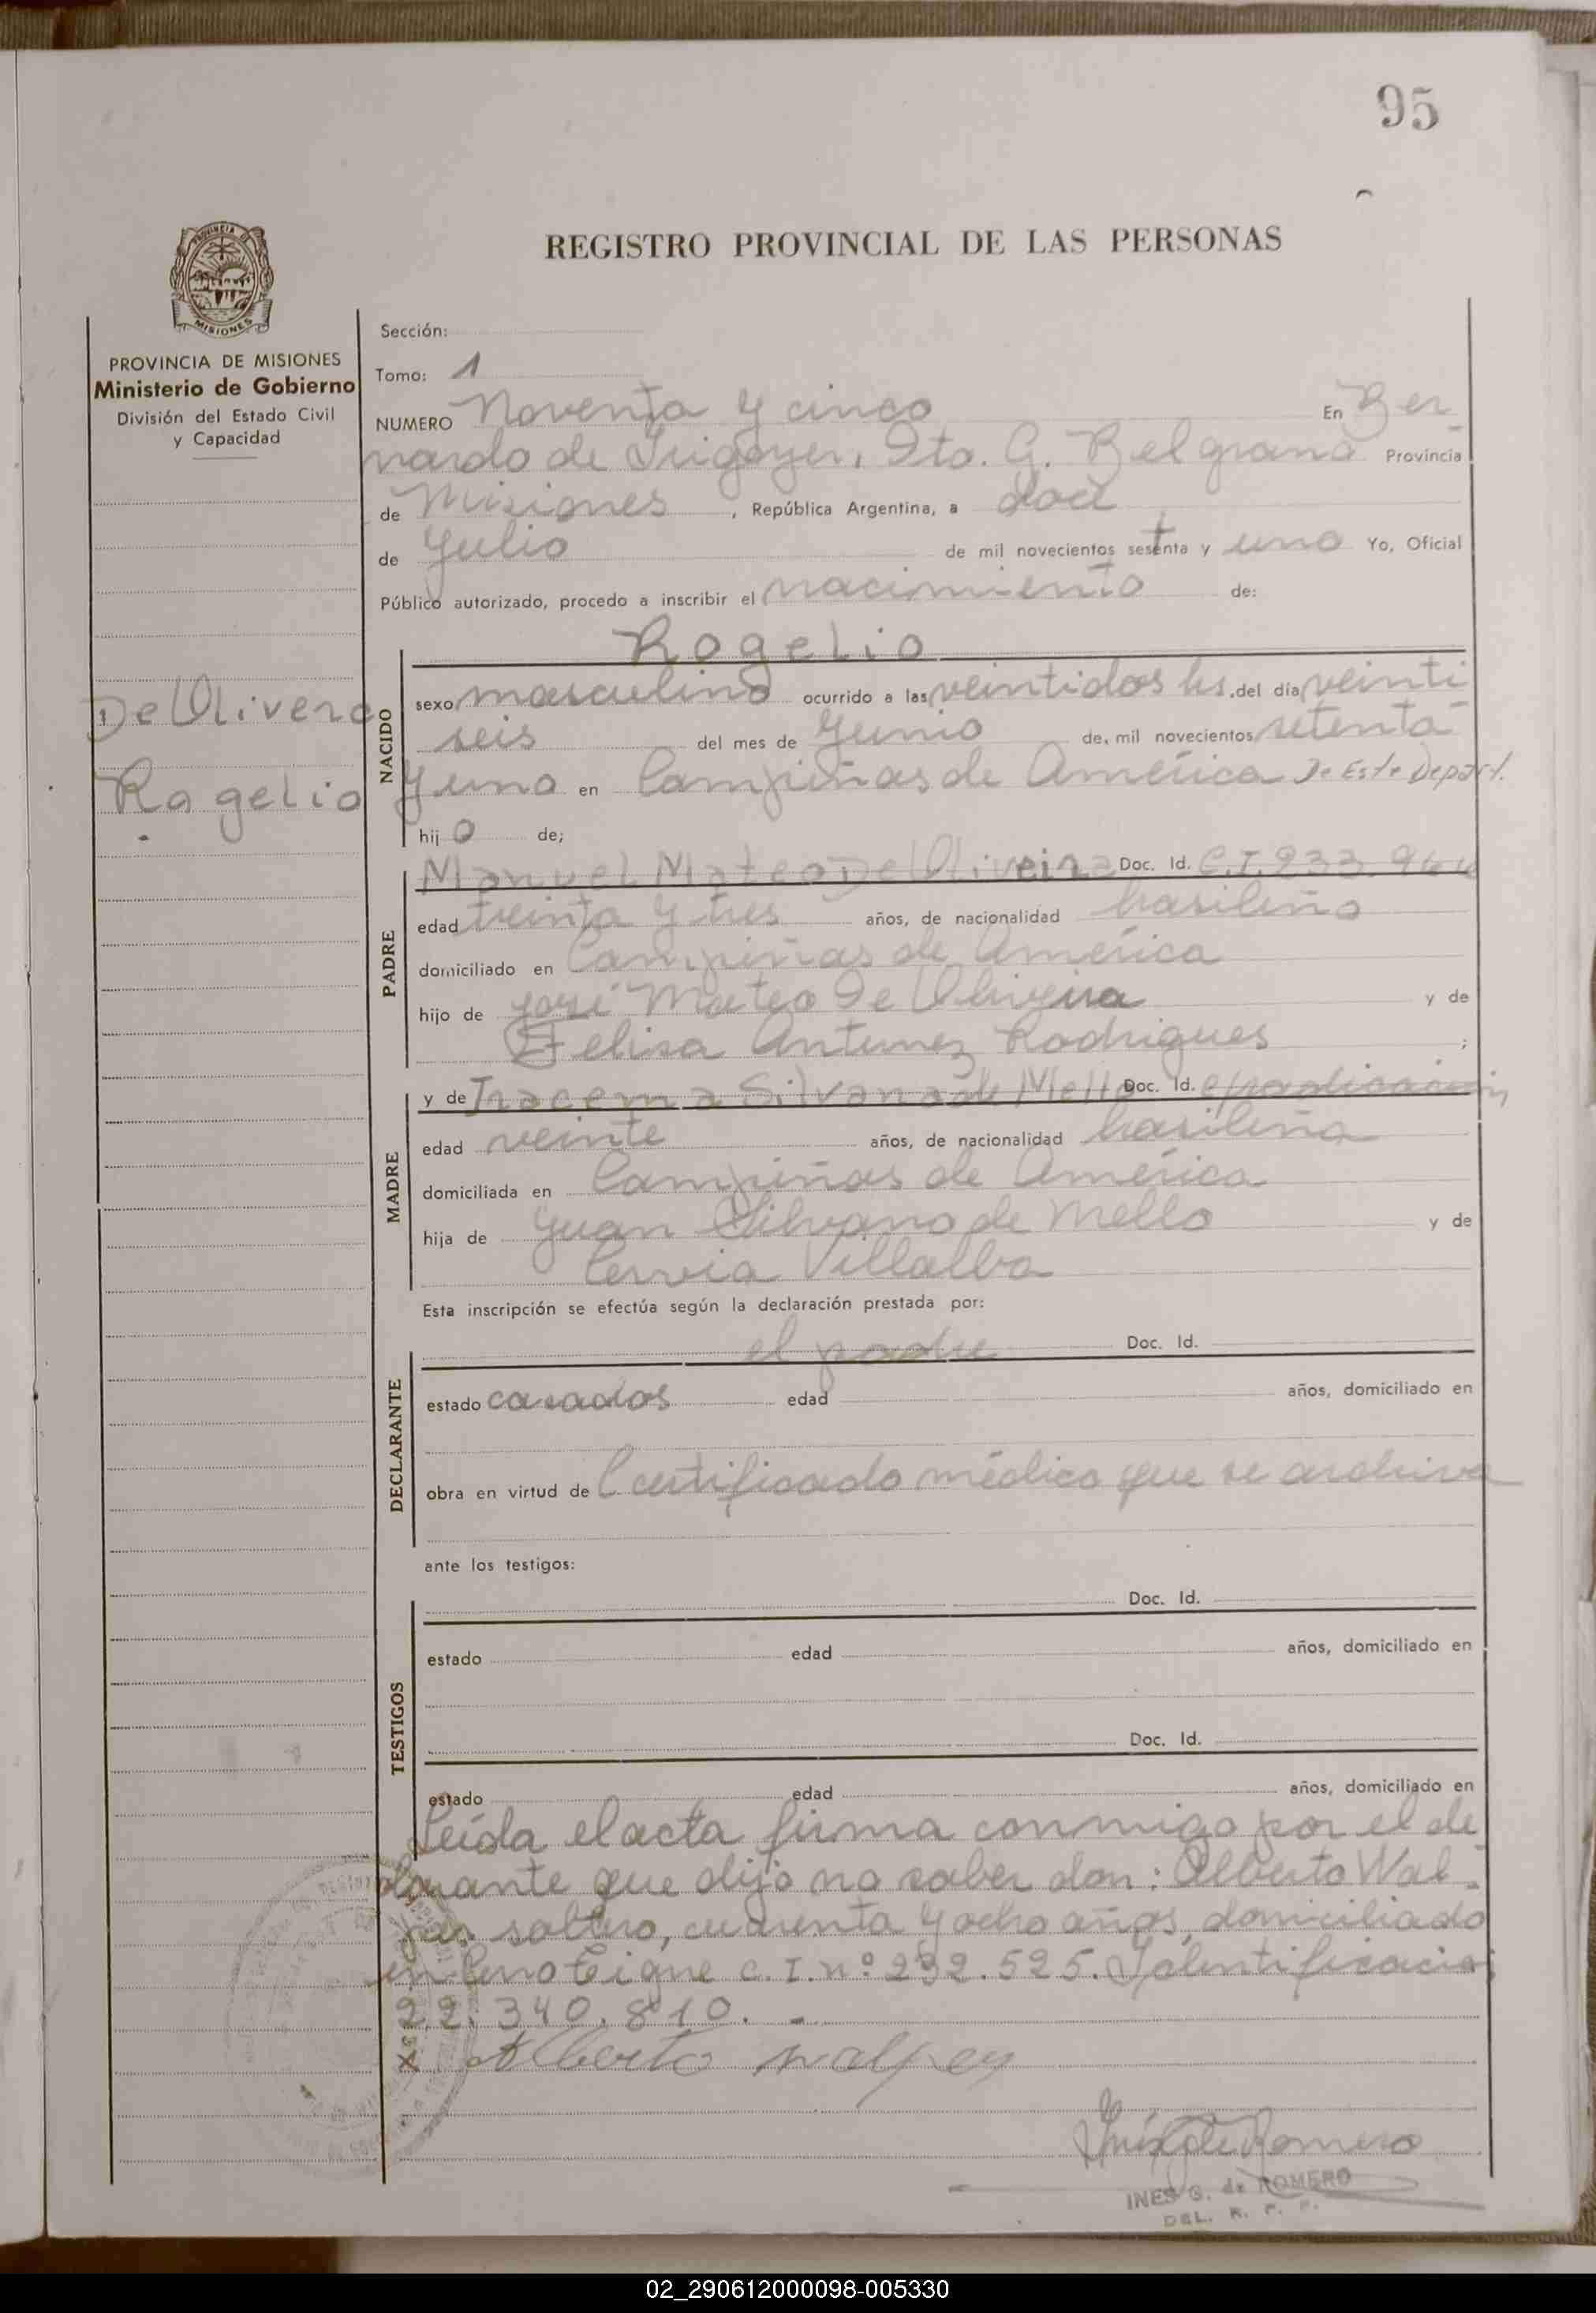 95
REGISTRO PROVINCIAL DE LAS PERSONAS
PROVINCIA DE
MISIONES
PROVINCIA DE MISIONES
Ministerio de Gobierno
División del Estado Civil
y Capacidad
De Olivera
Rogelio
Sección:
Tomo: 1
NUMERO Noventa y cinco En Ber
nardo de Irigoyen, Dto. G. Belgrano Provincia
de Misiones, República Argentina, a doce
de Julio de mil novecientos setenta y uno Yo, Oficial
Público autorizado, procedo a inscribir el nacimiento de:
Rogelio
NACIDO
sexo masculino ocurrido a las veintidos hs. del día veinti
seis del mes de Junio de mil novecientos setenta
y uno en Campiñas de América De Este Depart.
hijo de;
PADRE
Manuel Mateo De Oliveira Doc. Id. C.I. 233.944
edad treinta y tres años, de nacionalidad brasileño
domiciliado en Campiñas de América
hijo de José Mateo De Oliveira y de
Felisa Antunez Rodrigues ;
MADRE
y de Iracema Silvano de Mello Doc. Id.
edad veinte años, de nacionalidad brasileña
domiciliada en Campiñas de América
hija de Juan Silvano de Mello y de
Villalba
Esta inscripción se efectúa según la declaración prestada por:
DECLARANTE
el padre Doc. Id.
estado casados edad años, domiciliado en
obra en virtud de Certificado médico que se archiva
ante los testigos:
TESTIGOS
Doc. Id.
estado edad años, domiciliado en
Doc. Id.
estado edad años, domiciliado en
Leída el acta firma conmigo por el de
clarante que dijo no saber don: Alberto Wal
soltero, cuarenta y ocho años, domiciliado
en C. I. nº 232.525. Identificación
22.340.810. -
x Alberto
Inés G. de Romero
INES G. de ROMERO
DEL. R. P. P.
02_290612000098-005330